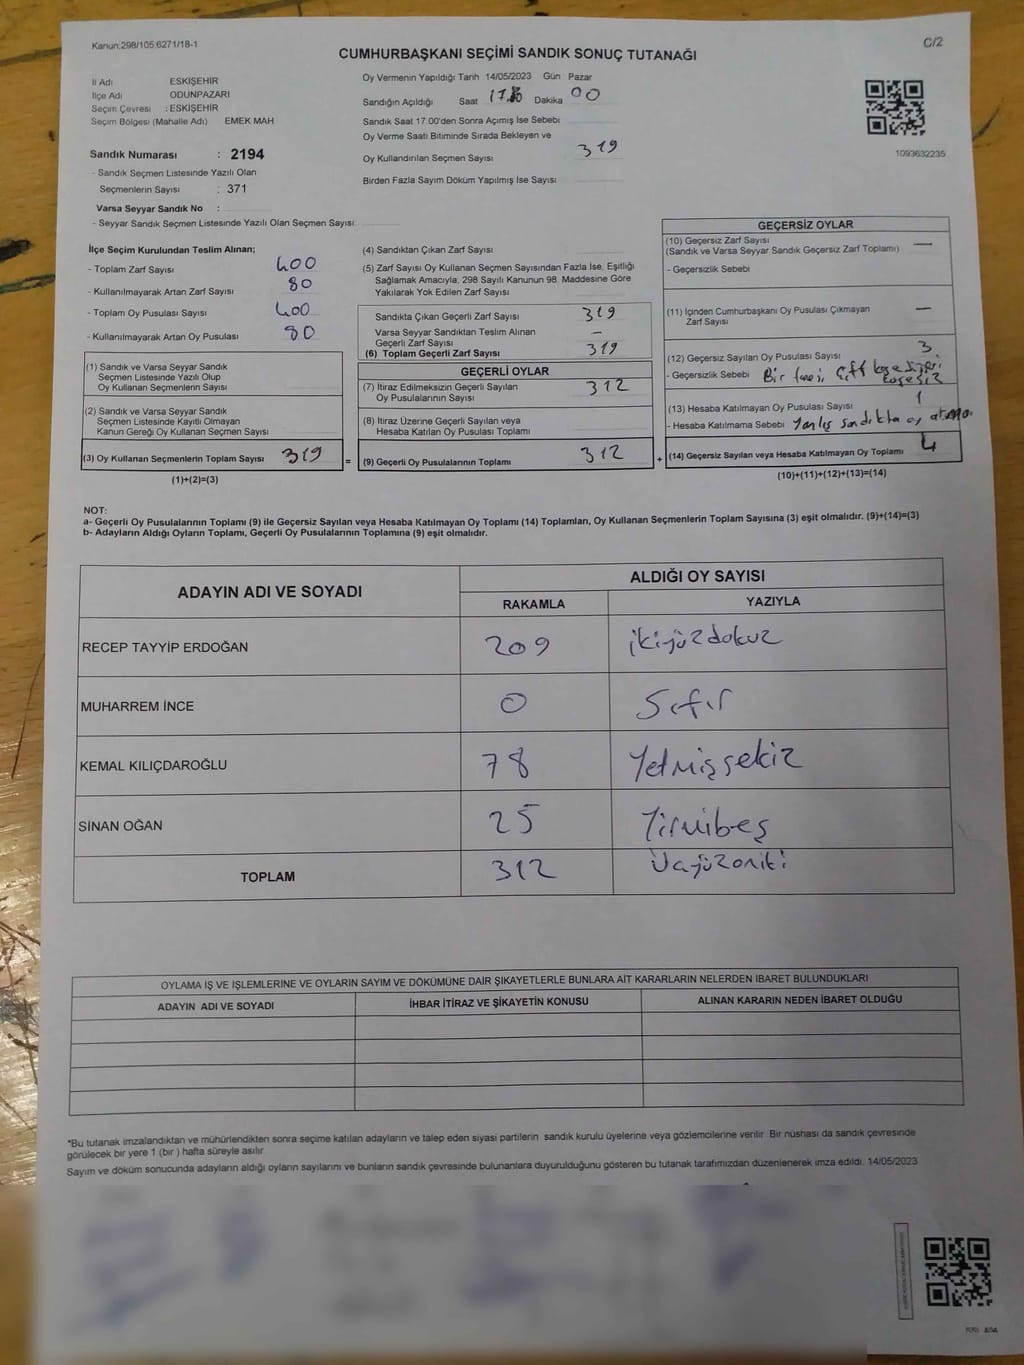 Kanun:298/105 6271/18-1
C/2
CUMHURBAŞKANI SEÇİMİ SANDIK SONUÇ TUTANAĞI
İl Adı ESKİŞEHİR
İlçe Adı ODUNPAZARI
Seçim Çevresi : ESKİŞEHİR
Seçim Bölgesi (Mahalle Adı) EMEK MAH
Sandık Numarası : 2194
- Sandık Seçmen Listesinde Yazılı Olan
Seçmenlerin Sayısı : 371
Varsa Seyyar Sandık No :
- Seyyar Sandık Seçmen Listesinde Yazılı Olan Seçmen Sayısı
Oy Vermenin Yapıldığı Tarih 14/05/2023 Gün Pazar
Sandığın Açıldığı Saat 17 Dakika 00
Sandık Saat 17.00'den Sonra Açımış İse Sebebi
Oy Verme Saati Bitiminde Sırada Bekleyen ve
Oy Kullandırılan Seçmen Sayısı 319
Birden Fazla Sayım Döküm Yapılmış İse Sayısı
1093632235
İlçe Seçim Kurulundan Teslim Alınan;
- Toplam Zarf Sayısı 400
- Kullanılmayarak Artan Zarf Sayısı 80
- Toplam Oy Pusulası Sayısı 400
- Kullanılmayarak Artan Oy Pusulası 80
(1) Sandık ve Varsa Seyyar Sandık
Seçmen Listesinde Yazılı Olup
Oy Kullanan Seçmenlerin Sayısı
(2) Sandık ve Varsa Seyyar Sandık
Seçmen Listesinde Kayıtlı Olmayan
Kanun Gereği Oy Kullanan Seçmen Sayısı
(3) Oy Kullanan Seçmenlerin Toplam Sayısı 319 =
(1)+(2)=(3)
(4) Sandıktan Çıkan Zarf Sayısı
(5) Zarf Sayısı Oy Kullanan Seçmen Sayısından Fazla İse, Eşitliği
Sağlamak Amacıyla; 298 Sayılı Kanunun 98. Maddesine Göre
Yakılarak Yok Edilen Zarf Sayısı
Sandıkta Çıkan Geçerli Zarf Sayısı 319
Varsa Seyyar Sandıktan Teslim Alınan
Geçerli Zarf Sayısı –
(6) Toplam Geçerli Zarf Sayısı 319
GEÇERLİ OYLAR
(7) İtiraz Edilmeksizin Geçerli Sayılan
Oy Pusulasının Sayısı 312
(8) İtiraz Üzerine Geçerli Sayılan veya
Hesaba Katılan Oy Pusulası Toplamı
(9) Geçerli Oy Pusulalarının Toplamı 312 +
GEÇERSİZ OYLAR
(10) Geçersiz Zarf Sayısı —
(Sandık ve Varsa Seyyar Sandık Geçersiz Zarf Toplamı)
- Geçersizlik Sebebi
(11) İçinden Cumhurbaşkanı Oy Pusulası Çıkmayan
Zarf Sayısı —
(12) Geçersiz Sayılan Oy Pusulası Sayısı 3
- Geçersizlik Sebebi Bir tanesi Çift
(13) Hesaba Katılmayan Oy Pusulası Sayısı 1
- Hesaba Katılmama Sebebi Yanlış sandıkta oy atma
(14) Geçersiz Sayılan veya Hesaba Katılmayan Oy Toplamı 4
(10)+(11)+(12)+(13)=(14)
NOT:
a- Geçerli Oy Pusulalarının Toplamı (9) ile Geçersiz Sayılan veya Hesaba Katılmayan Oy Toplamı (14) Toplamları, Oy Kullanan Seçmenlerin Toplam Sayısına (3) eşit olmalıdır. (9)+(14)=(3)
b- Adayların Aldığı Oyların Toplamı, Geçerli Oy Pusulalarının Toplamına (9) eşit olmalıdır.
ADAYIN ADI VE SOYADI ALDIĞI OY SAYISI
RAKAMLA YAZIYLA
RECEP TAYYİP ERDOĞAN 209 ikiyüzdokuz
MUHARREM İNCE 0 Sıfır
KEMAL KILIÇDAROĞLU 78 Yetmişsekiz
SİNAN OĞAN 25 Yirmibeş
TOPLAM 312 Üçyüzoniki
OYLAMA İŞ VE İŞLEMLERİNE VE OYLARIN SAYIM VE DÖKÜMÜNE DAİR ŞİKAYETLERLE BUNLARA AİT KARARLARIN NELERDEN İBARET BULUNDUKLARI
ADAYIN ADI VE SOYADI İHBAR İTİRAZ VE ŞİKAYETİN KONUSU ALINAN KARARIN NEDEN İBARET OLDUĞU
*Bu tutanak imzalandıktan ve mühürlendikten sonra seçime katılan adayların ve talep eden siyasi partilerin sandık kurulu üyelerine veya gözlemcilerine verilir. Bir nüshası da sandık çevresinde
görülecek bir yere 1 (bir ) hafta süreyle asılır
Sayım ve döküm sonucunda adayların aldığı oyların sayılarını ve bunların sandık çevresinde bulunanlara duyurulduğunu gösteren bu tutanak tarafımızdan düzenlenerek imza edildi. 14/05/2023